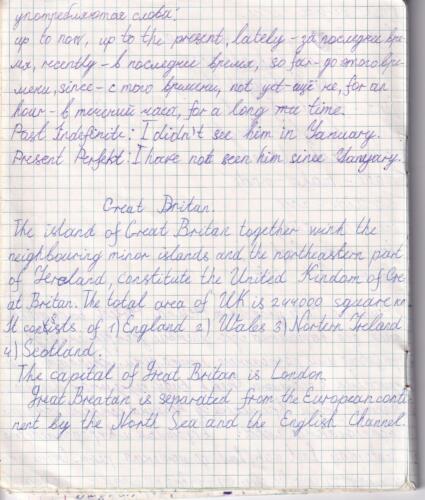 употребляются слова:
up to now, up to the present, lately - за последнее вре-
мя, recently - в последнее время, so far - до этого вре-
мени, since - с того времени, not yet - ещё не, for an
hour - в течений часа, for a long time.
Past Indefinite: I didn't see him in Yanuary.
Present Perfekt: I have not seen him since Yanyary.
Great Britan.
The island of Great Britan together with the
neighbouring minor islands and the northeastern part
of Ireland, constitute the United Kindom of Gre-
at Britan. The total area of UK is 244000 square km
It consists of 1) England 2) Wales 3) Nortern Ireland
4) Scotland.
The capital of Great Britan is London
Great Breatan is separated from the European conti-
nent by the North Sea and the English Channel.